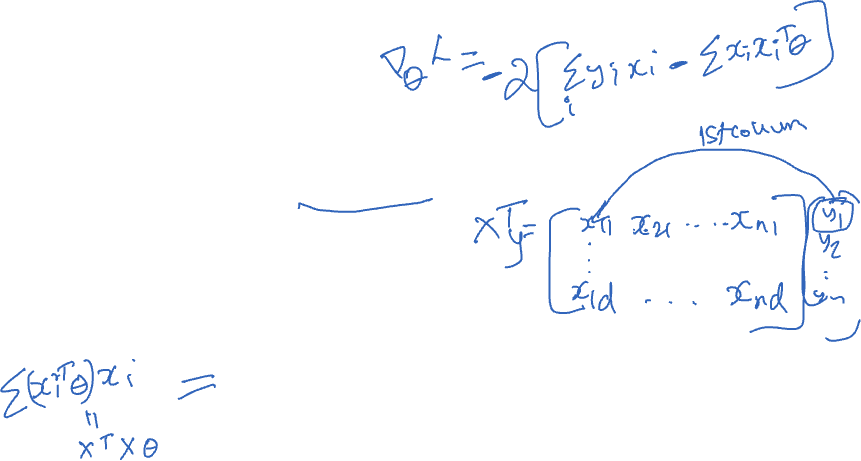 ∇_θ L = -2[Σ_i y_i x_i - Σ x_i x_i^T θ]
1st column
X^T y = [x_11 x_21 ... x_n1] [y_1
⋮ y_2
⋮
x_1d ... x_nd] y_n]
Σ(x_i^T θ) x_i =
=
X^T X θ